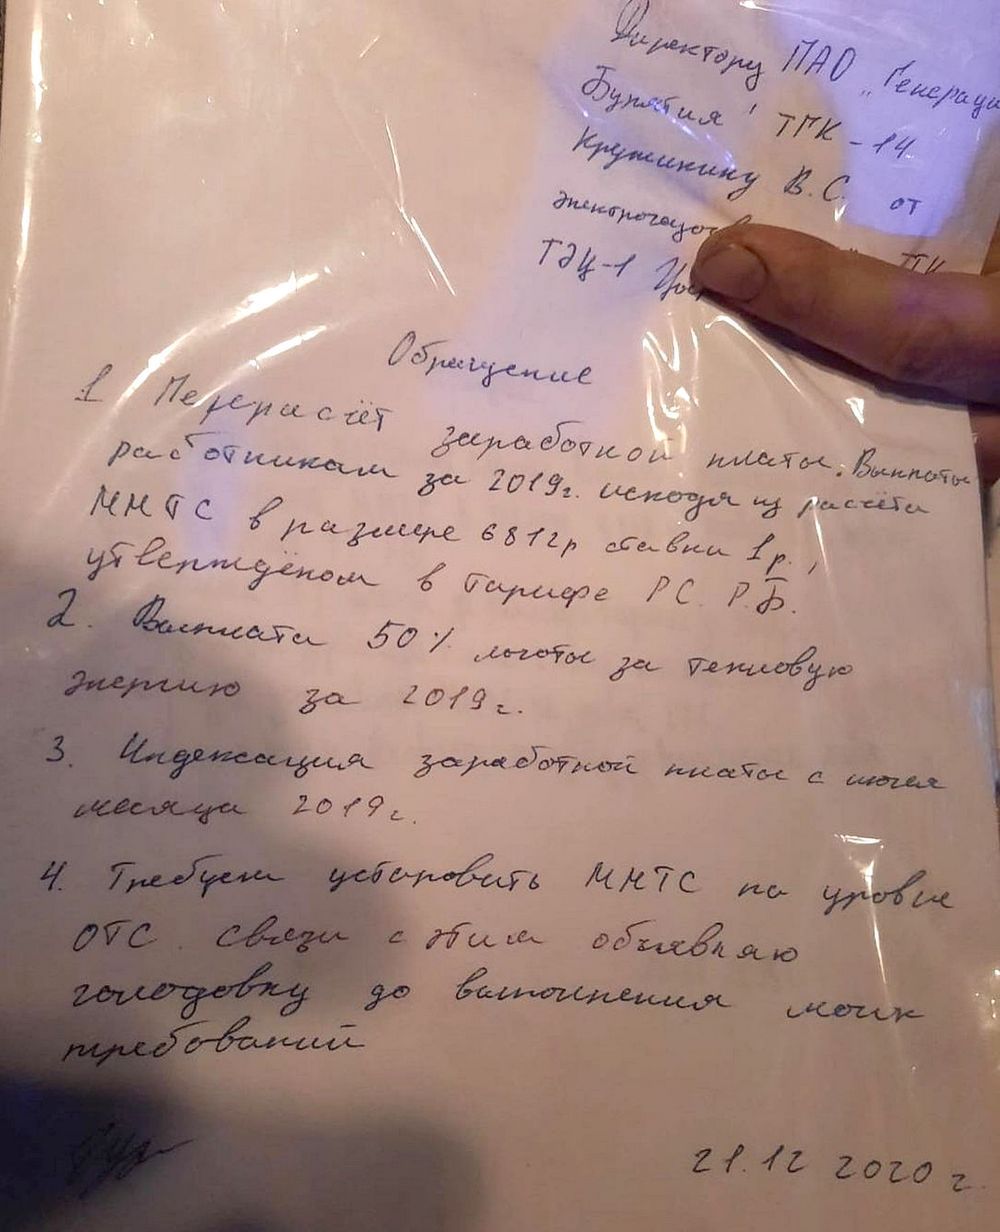 Директору ПАО „Генерация
Бурятия" ТГК-14
Кружинину В.С. от
ТЭЦ-1
Обращение
1 Перерасчёт заработной платы. Выплаты
работникам за 2019г. исходя из расчёта
ММТС в размере 6812р ставки 1р.,
утверждёном в тарифе РС. Р.Б.
2. Выплата 50% льготы за тепловую
энергию за 2019г.
3. Индексация заработной платы с июля
месяца 2019г.
4. Требуем установить ММТС на уровне
ОТС. связи с этим объявляю
голодовку до выполнения моих
требований
21.12 2020 г.